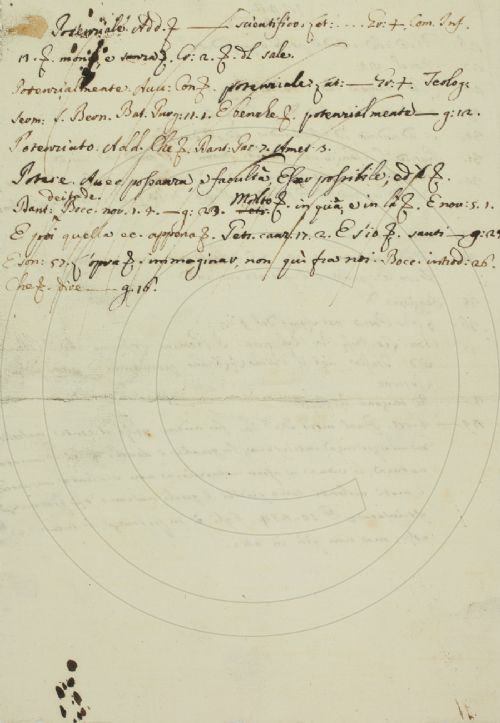 Potenziale. Add. P — scientifico. et: .... Gr: +. Com. Inf.
11. P. monia e senza P. Cr: 2. P. dl sale.
Potenzialmente. Avv: Con P. potenziale. at: — Gr: +. Teolog:
serm: S. Bern. Bat. Purg: 11.1. E benche P. potenzialmente — g: 12.
Potenziato. Add. Che P. Dant: Par 7. Amet 3.
Potere. Aver possanza, e facultà, Esser possibile, ed P.
deitade.
Dant: Bocc. nov. 1. 7. — g: 23. Molto P. in quà, e in là P. E nov: 5. 1.
E poi quella ec. appena P. Petr. canz. 17. 2. E s'io P. santi — g: 29
E son: 57. S'opra P. immaginar, non qui fra noi. Bocc. introd: 26.
Che P. dire — g: 16.